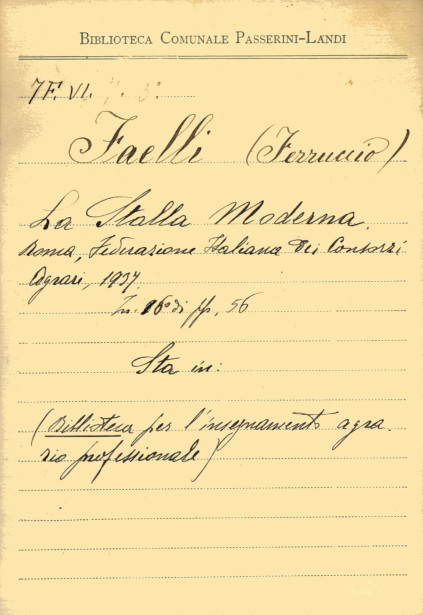 BIBLIOTECA COMUNALE PASSERINI-LANDI
7F. VI.
Faelli (Ferruccio)
La Stalla Moderna.
Roma, Federazione Italiana Dei Consorzi
Agrari, 1937.
In 16° di pp. 56
Sta in:
(Biblioteca per l'insegnamento agra-
rio professionale)